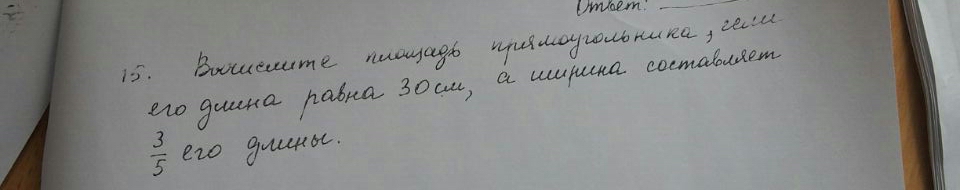 Ответ:
15. Вычислите площадь прямоугольника, если
его длина равна 30 см, а ширина составляет
3/5 его длины.